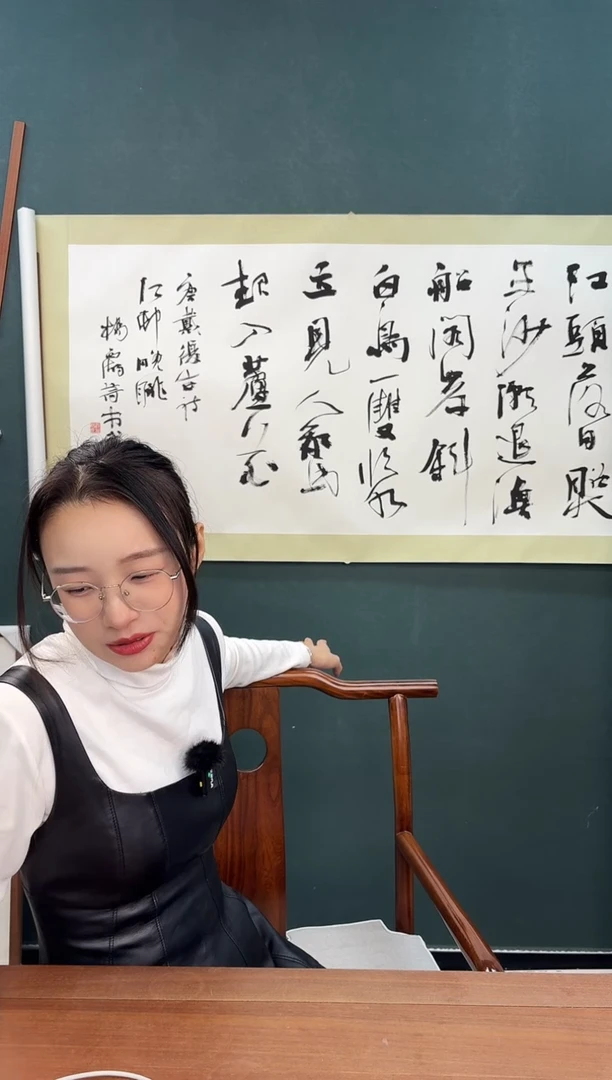 江頭落日照
平沙潮退漁
船閣岸斜
白鳥一雙临水
立見人驚
起入蘆花
宋戴復古诗
江邨晚眺
楊 诗书